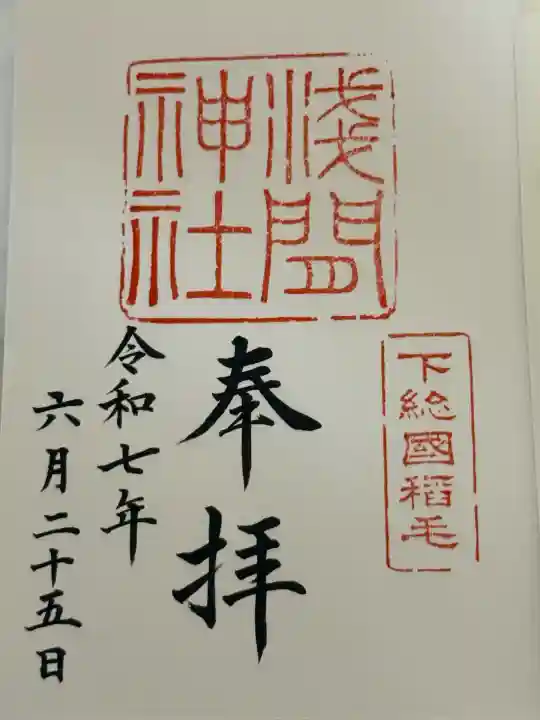 淺間
神社
下総國稻毛
奉拝
令和七年
六月二十五日